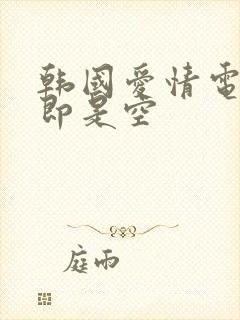 韩國愛情電
即是空
庭雨